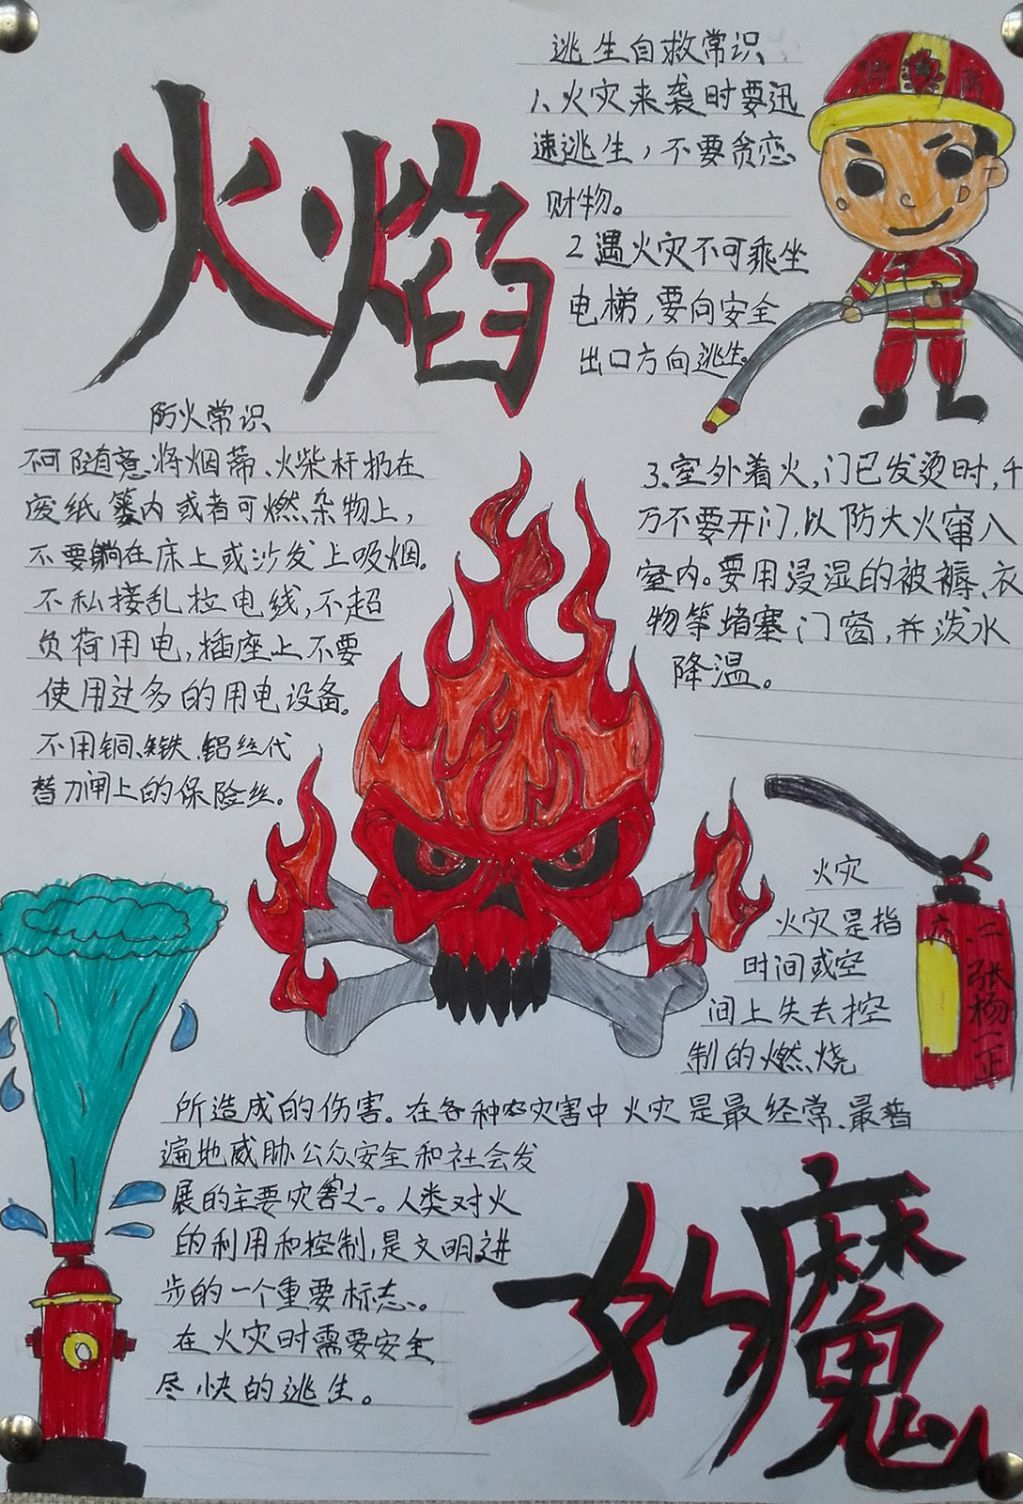 火焰
逃生自救常识
1、火灾来袭时要迅
速逃生，不要贪恋
财物。
2遇火灾不可乘坐
电梯，要向安全
出口方向逃生。
3、室外着火，门已发烫时，千
万不要开门，以防大火窜入
室内。要用浸湿的被褥、衣
物等堵塞门窗，并泼水
降温。
防火常识
不可随意将烟蒂、火柴杆扔在
废纸篓内或者可燃杂物上，
不要躺在床上或沙发上吸烟。
不私接乱拉电线，不超
负荷用电，插座上不要
使用过多的用电设备。
不用铜、铁、铝丝代
替刀闸上的保险丝。
火灾
火灾是指
时间或空
间上失去控
制的燃烧
所造成的伤害。在各种灾害中火灾是最经常、最普
遍地威胁公众安全和社会发
展的主要灾害之一。人类对火
的利用和控制，是文明进
步的一个重要标志。
在火灾时需要安全
尽快的逃生。
六、二
张杨一正
魔